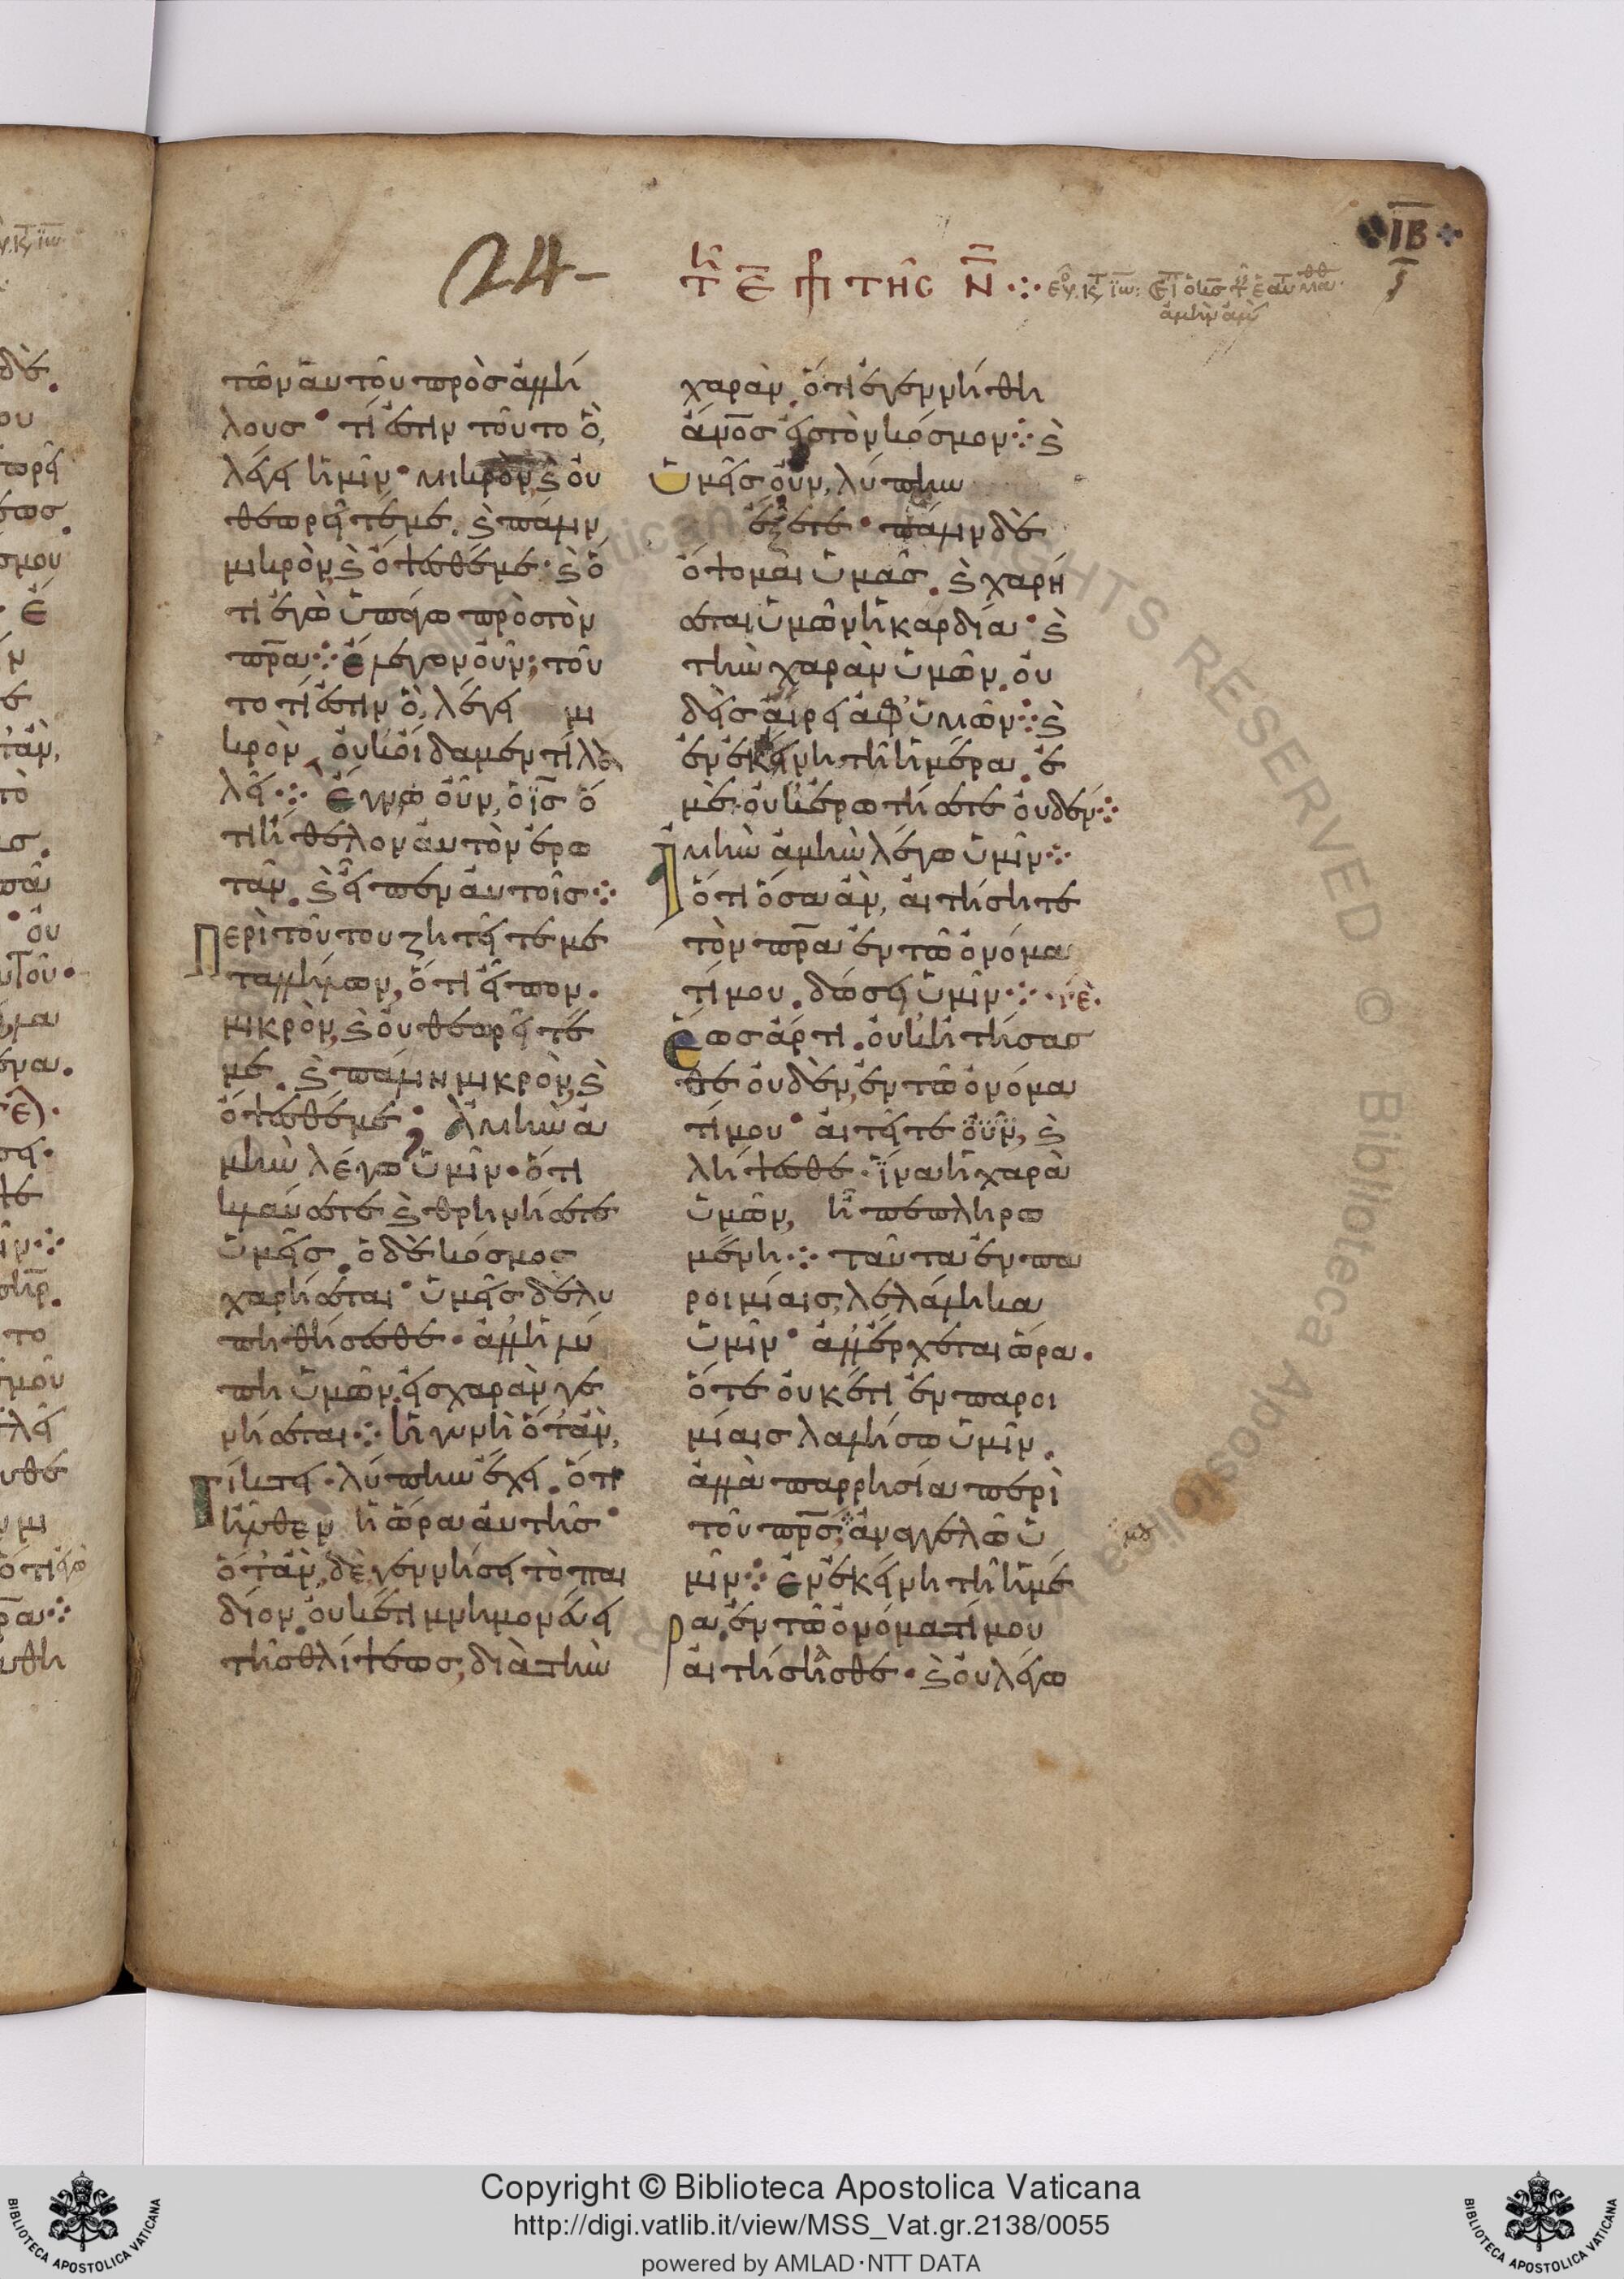 ΙΒ
24-
τῶν αὐτοῦ πρὸς ἀλλή
λους· τί ἐστιν τοῦτο ὃ,
λέγει ἡμῖν· μικρὸν, ϗ οὐ
θεωρεῖτέ με. ϗ πάλιν
μικρὸν, ϗ ὄψεσθέ με· ϗ ὅ
τι ἐγὼ ὑπάγω πρὸς τὸν
πρα ⁘ ἔλεγον οὖν, τοῦ
το τί ἐστιν ὃ, λέγει μι
κρὸν, οὐκ οἴδαμεν τί λα
λεῖ ⁘ ἔγνω οὖν, ὁ ις ὅ
τι ἤθελον αὐτὸν ἐρω
τᾶν. ϗ εἶπεν αὐτοῖς ⁘
Περὶ τούτου ζητεῖτε με
τ' ἀλλήλων, ὅτι εἶπον.
μικρὸν, ϗ οὐ θεωρεῖτέ
με. ϗ πάλιν μικρὸν, ϗ
ὄψεσθέ με; Ἀμὴν ἀ
μὴν λέγω ὑμῖν· ὅτι
κλαύσετε ϗ θρηνήσετε
ὑμεῖς. ὁ δὲ κόσμος
χαρήσεται· ὑμεῖς δὲ λυ
πηθήσεσθε· ἀλλ' ἡ λύ
πη ὑμῶν, εἰς χαρὰν γε
νήσεται ⁘ ἡ γυνὴ ὅταν,
τίκτει· λύπην ἔχει. ὅτι
ἦλθεν ἡ ὥρα αὐτῆς·
ὅταν, δὲ γεννήσει τὸ παι
δίον, οὐκέτι μνημονεύει
τῆς θλίψεως, διὰ τὴν
χαρὰν, ὅτι ἐγεννήθη
ανος εἰς τὸν κόσμον ⁘ ϗ
ὑμεῖς οὖν, λύπην
ἕξετε· πάλιν δὲ
ὄψομαι ὑμᾶς. ϗ χαρή
σεται ὑμῶν ἡ καρδία· ϗ
τὴν χαρὰν ὑμῶν, οὐ
δεὶς αἴρει ἀφ' ὑμῶν ⁘ ϗ
ἐν ἐκείνη τῆ ἡμέρα, ἐ
μὲ οὐκ ἐρωτήσετε οὐδέν ⁘
Ἀμὴν ἀμὴν λέγω ὑμῖν ⁘
ὅτι ὅσα ἂν, αἰτήσητε
τὸν πρα ἐν τῶ ὀνόμα
τί μου. δώσει ὑμῖν ⁘
Ἕως ἄρτι, οὐκ ἠτήσασ
θε οὐδὲν, ἐν τῶ ὀνόμα
τί μου· αἰτεῖτε οὖν, ϗ
λήψεσθε· ἵνα ἡ χαρὰ
ὑμῶν, ἦ πεπληρω
μένη ⁘ ταῦτα ἐν πα
ροιμίαις, λελάληκα
ὑμῖν· ἀλλ' ἔρχεται ὥρα.
ὅτε οὐκέτι ἐν παροι
μίαις λαλήσω ὑμῖν.
ἀλλὰ παρρησία περὶ
τοῦ πρς ἀναγγελῶ ὑ
μῖν ⁘ ἐν ἐκείνη τῆ ἡμέ
ρα, ἐν τῶ ὀνόματί μου
αἰτήσησθε· ϗ οὐ λέγω
Copyright © Biblioteca Apostolica Vaticana
http://digi.vatlib.it/view/MSS_Vat.gr.2138/0055
powered by AMLAD·NTT DATA